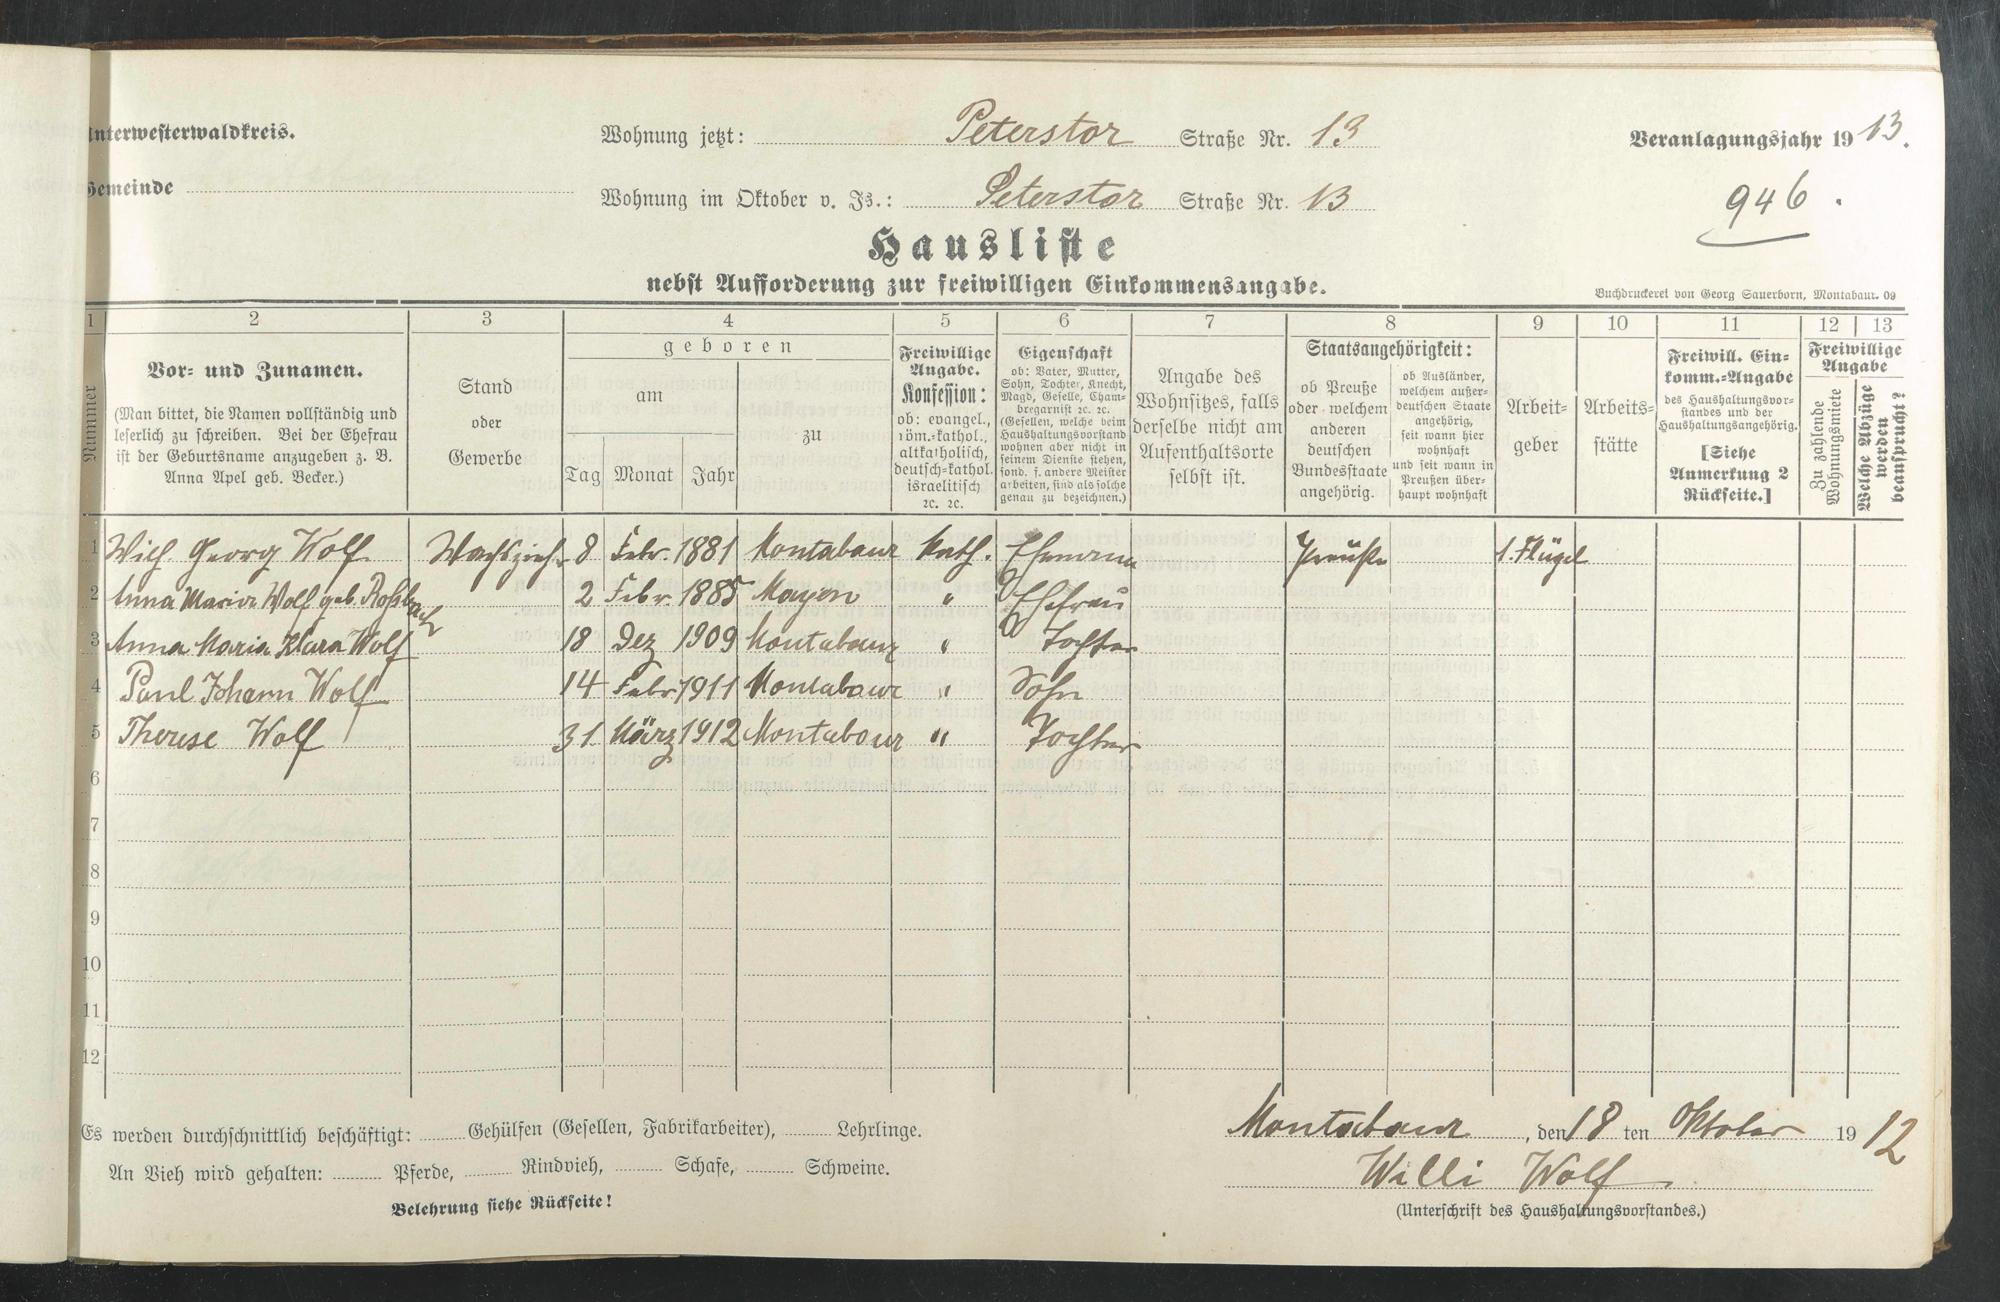 Unterwesterwaldkreis.
Wohnung jetzt: Peterstor Straße Nr. 13
Veranlagungsjahr 1913.
Gemeinde
Wohnung im Oktober v. Js.: Peterstor Straße Nr. 13
946.
Hausliste
nebst Aufforderung zur freiwilligen Einkommensangabe.
Buchdruckerei von Georg Sauerborn, Montabaur. 09
1 2 3 4 5 6 7 8 9 10 11 12 13
Nummer
Vor- und Zunamen.
(Man bittet, die Namen vollständig und
leserlich zu schreiben. Bei der Ehefrau
ist der Geburtsname anzugeben z. B.
Anna Apel geb. Becker.)
Stand
oder
Gewerbe
geboren
am
zu
Tag Monat Jahr
Freiwillige
Angabe.
Konfession:
ob: evangel.,
röm.-kathol.,
altkatholisch,
deutsch-kathol.
israelitisch
ec. ec.
Eigenschaft
ob: Vater, Mutter,
Sohn, Tochter, Knecht,
Magd, Geselle, Cham-
bregarnist ec. ec.
(Gesellen, welche beim
Haushaltungsvorstand
wohnen aber nicht in
seinem Dienste stehen,
sond. f. andere Meister
arbeiten, sind als solche
genau zu bezeichnen.)
Angabe des
Wohnsitzes, falls
derselbe nicht am
Aufenthaltsorte
selbst ist.
Staatsangehörigkeit:
ob Preuße
oder welchem
anderen
deutschen
Bundesstaate
angehörig.
ob Ausländer,
welchem außer-
deutschen Staate
angehörig,
seit wann hier
wohnhaft
und seit wann in
Preußen über-
haupt wohnhaft
Arbeit-
geber
Arbeits-
stätte
Freiwill. Ein-
komm.-Angabe
des Haushaltungsvor-
standes und der
Haushaltungsangehörig.
[Siehe
Anmerkung 2
Rückseite.]
Freiwillige
Angabe
Zu zahlende
Wohnungsmiete
Welche Abzüge
werden
beansprucht?
1 Wilh. Georg Wolf Wachszieher 8 Febr. 1881 Montabaur Kath. Ehemann Preuße J. Flügel
2 Anna Maria Wolf geb. Roßbach 2 Febr. 1885 Mayen " Ehefrau
3 Anna Maria Klara Wolf 18 Dez 1909 Montabaur " Tochter
4 Paul Johann Wolf 14 Febr 1911 Montabaur " Sohn
5 Therese Wolf 31 März 1912 Montabaur " Tochter
6
7
8
9
10
11
12
Es werden durchschnittlich beschäftigt: Gehülfen (Gesellen, Fabrikarbeiter), Lehrlinge.
An Vieh wird gehalten: Pferde, Rindvieh, Schafe, Schweine.
Belehrung siehe Rückseite!
Montabaur, den 18 ten Oktober 1912
Willi Wolf
(Unterschrift des Haushaltungsvorstandes.)